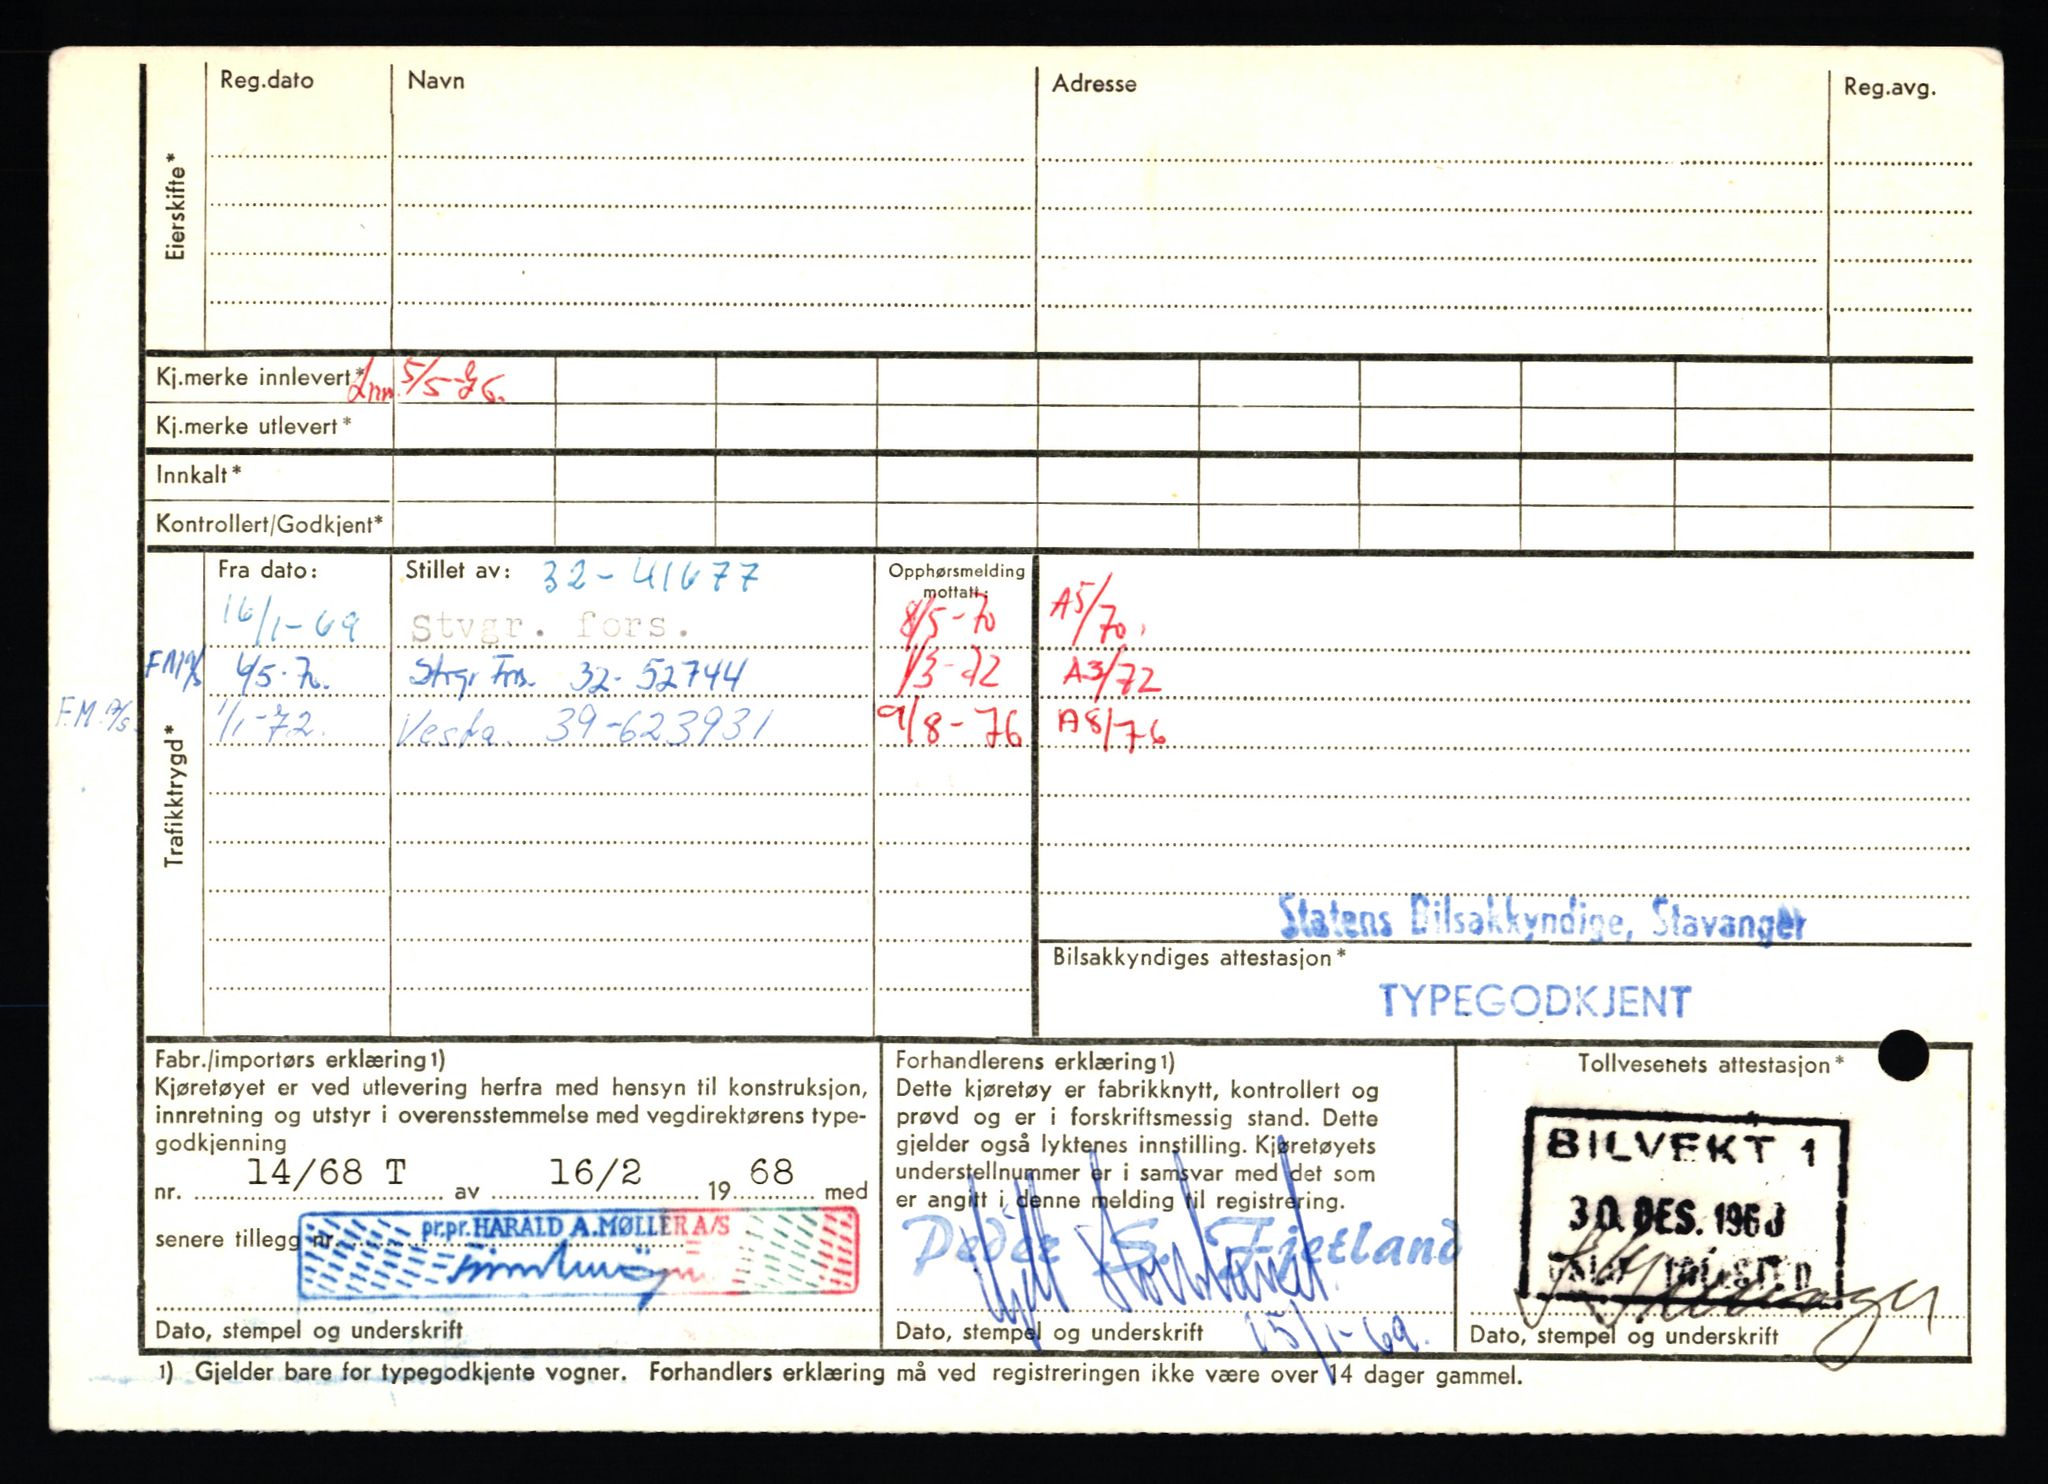 Reg.dato Navn Adresse Reg.avg.
Eierskifte*
Kj.merke innlevert* Inn. 5/5-76.
Kj.merke utlevert*
Innkalt*
Kontrollert/Godkjent*
Trafikktrygd*
Fra dato: Stillet av: 32-41677 Opphørsmelding mottatt:
16/1-69 Stvgr. fors. 8/5-70 A5/70.
6/5-70. Stvgr Fors. 32-52744 1/3-72 A3/72
F.M. 1/1-72. Vesta 39-623931 9/8-76 A8/76
Statens Bilsakkyndige, Stavanger
Bilsakkyndiges attestasjon*
TYPEGODKJENT
Fabr./importørs erklæring1)
Kjøretøyet er ved utlevering herfra med hensyn til konstruksjon,
innretning og utstyr i overensstemmelse med vegdirektørens type-
godkjenning
nr. 14/68 T av 16/2 1968 med
senere tillegg nr.
pr.pr. HARALD A. MØLLER A/S
Dato, stempel og underskrift
Forhandlerens erklæring1)
Dette kjøretøy er fabrikknytt, kontrollert og
prøvd og er i forskriftsmessig stand. Dette
gjelder også lyktenes innstilling. Kjøretøyets
understellnummer er i samsvar med det som
er angitt i denne melding til registrering.
S. Fjetland
Dato, stempel og underskrift 15/1-69.
Tollvesenets attestasjon*
BILVEKT 1
30. DES. 1968
Dato, stempel og underskrift
1) Gjelder bare for typegodkjente vogner. Forhandlers erklæring må ved registreringen ikke være over 14 dager gammel.